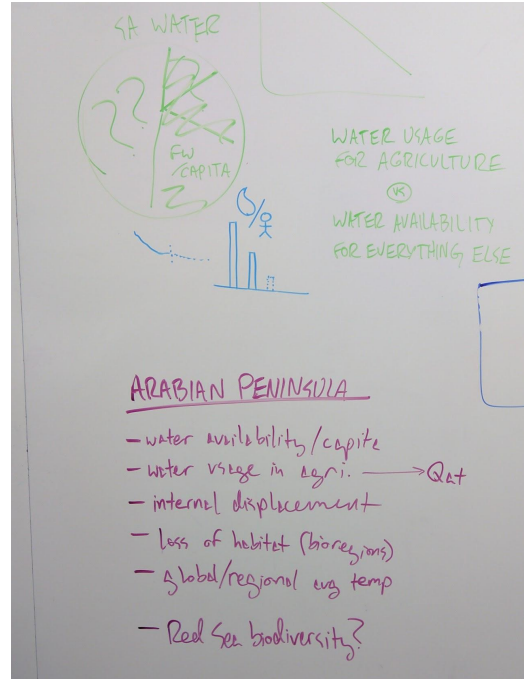 SA WATER
??
FW
/CAPITA
WATER USAGE
FOR AGRICULTURE
VS
WATER AVAILABILITY
FOR EVERYTHING ELSE
ARABIAN PENINSULA
- water availability/capita
- water usage in agri. → Qat
- internal displacement
- loss of habitat (bioregions)
- global/regional avg temp
- Red Sea biodiversity?